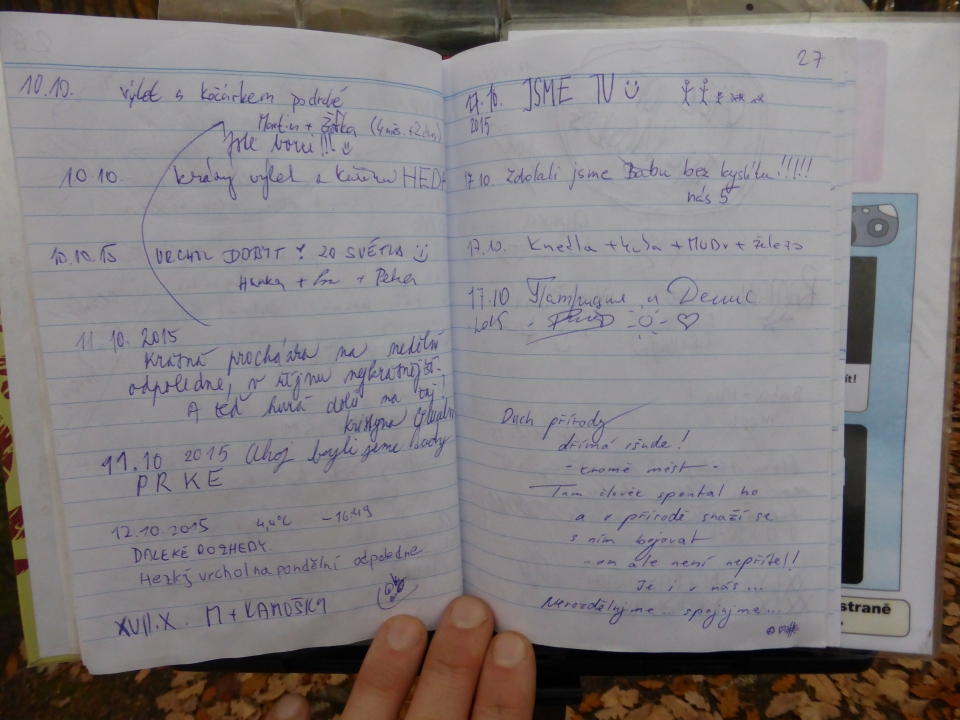 10.10. výlet s kočárkem podruhé
Martin + (4 měs. + 2 dny)
Jste borci!!!
10.10. krásný výlet z HEDE
10.10.15 VRCHOL DOBYT! 20 SVĚTLA
Hanka + + Petra
11.10. 2015
Krásná procházka na nedělní
odpoledne, v říjnu nejkrásnější.
A teď hurá dolů na čaj!
Kristyna
11.10 2015 Ahoj byli jsme tady
PRKE
12.10.2015 4,4°C - 16:49
DALEKÉ ROZHEDY.
Hezký vrchol na pondělní odpoledne
XVII.X. M + KAMOŠKA
27
17.10. JSME TU
2015
17.10. Zdolali jsme Babu bez kyslíku!!!!!!
nás 5
17.10. Knedla + + MUDr + železo
17.10 Патриция и Денис
2015
Duch přírody
dřímá všude!
- kromě měst -
Tam člověk spoutal ho
a v přírodě snaží se
s ním bojovat
- on ale není nepřítel!
Je i v nás...
Nerozdělujme.. spojujme...
ít!
straně